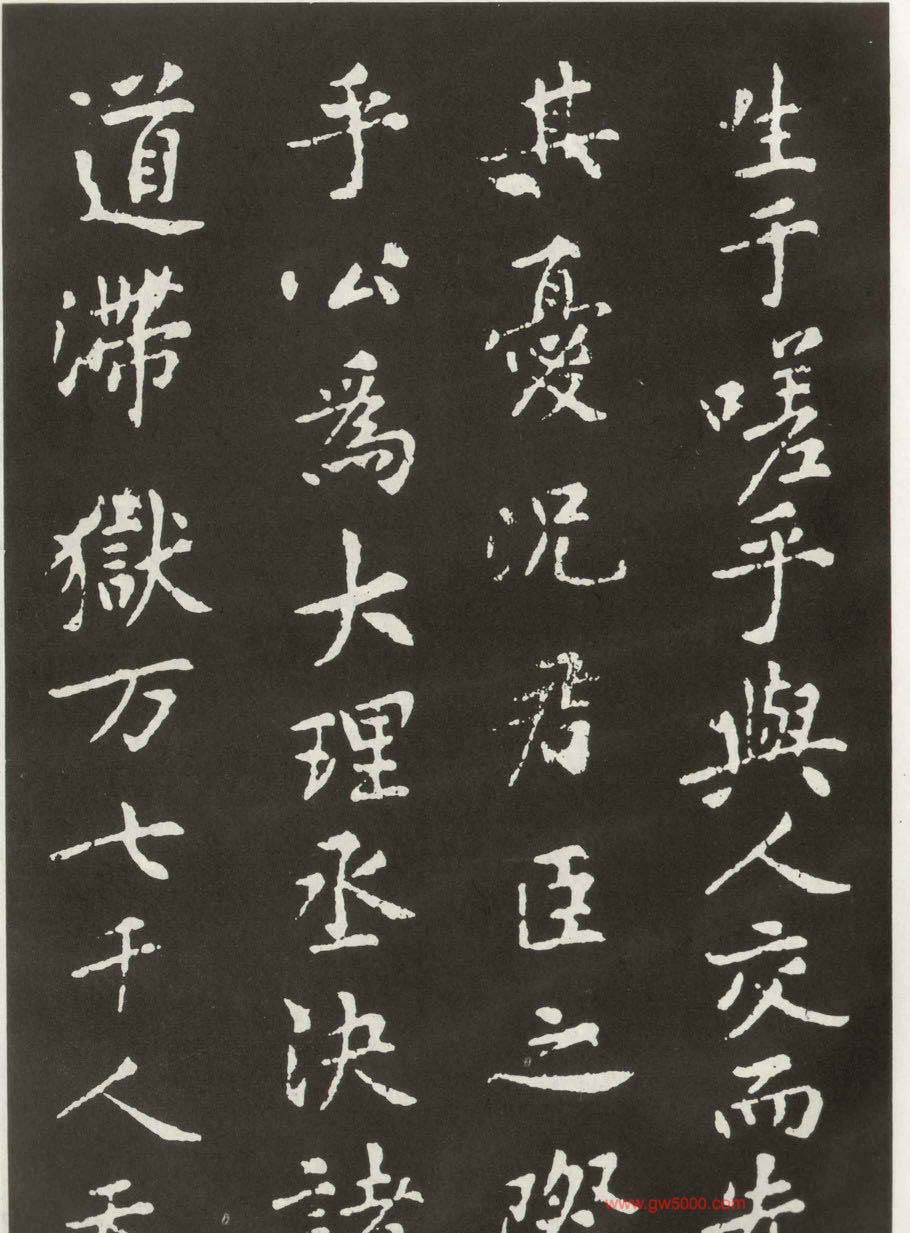 生于嗟乎與人交而先
其憂況君臣之際
乎公為大理丞決諸
道滯獄万七千人
www.gw5000.com